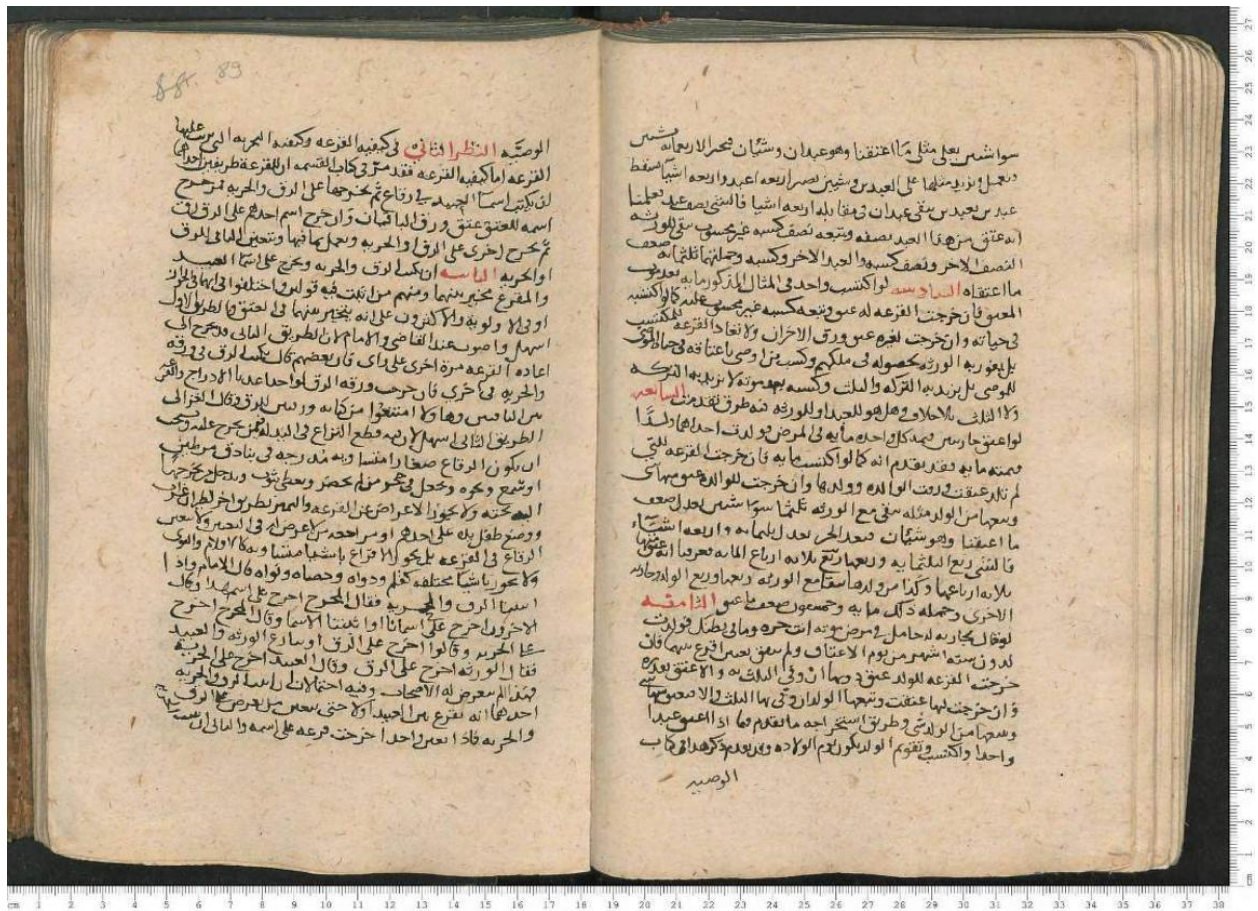 سوا شيين يعدلى مثلى ما اعتقنا وهو عبدان وشيئان فنجبر الاربعمائه بشيين
ونعمل ونزيد مثلها على العبدين وشيين يصير اربعه اعبد واربعه اشيا فنسقط
عبدين بعبدين يبقى عبدان فى مقابله اربعه اشيا فالشى نصف عبد فعلمنا
انه عتق من هذا العبد نصفه وتبعه نصف كسبه غير محسوب يبقى للورثه
النصف الاخر ونصف كسبه والعبد الاخر وكسبه وجملتها ثلثمائه ضعف
ما اعتقناه السادسه لو اكتسب واحد فى المثال المذكور مايه بعد موت
المعتق فان خرجت القرعه له عتق وتبعه كسبه غير محسوب عليه كما لو اكتسبه
فى حياته وان خرجت لغيره عتق ورق الاخران ولا تعاد القرعه للمكتسب
بل يفوز به الورثه لحصوله فى ملكهم وكسب من اوصى باعتاقه فى حياه الموصى
للموصى بل يزيد به التركه والثلث وكسبه بعد موته لا يزيد به التركه
ولا الثلث بلا خلاف وهل هو للعبد او للورثه فيه طرق تقدمت السابعه
لو اعتق جاريتين قيمه كل واحده مايه فى المرض فولدت احداهما ولدا
قيمته مايه فقد تقدم انه كما لو اكتسب مايه فان خرجت القرعه للتى
لم تلد عتقت ورقت الوالده وولدها وان خرجت للوالده عتق منها شى
وتبعها من الولد مثله يبقى مع الورثه ثلثمائه سوا شيين يعدل ضعف
ما اعتقنا وهو شيئان فبعد الجبر يعدل ثلثمايه واربعه اشياء
فالشى ربع الثلثمايه وربعها ثلاثه ارباع المايه فعرفنا انه عتق منها
ثلاثه ارباعها وكذا من ولدها يبقا مع الورثه ربعها وربع الولد وجاريه
الاخرى وجمله ذلك مايه وخمسون ضعف ما عتق الثامنه
لو قال لجاريه له حامل فى مرض موته انت حره وما فى بطنك فولدت
لدون سته اشهر من يوم الاعتاق ولم يسبق تعيين اقرع بينهما فان
خرجت القرعه للولد عتق دونها ان وفى الثلث به والا عتق بقدره
وان خرجت لها عتقت وتبعها الولد ان وفى بها الثلث والا فيعتق منها شى
وتبعها من الولد شى وطريق استخراجه ما تقدم فيما اذا اعتق عبدا
واحدا واكتسب وتقويم الولد يكون يوم الولاده وقد تقدم ذكر هذا فى كتاب
الوصيه
89
الوصيه النظر الثانى فى كيفيه القرعه وكيفيه التجزيه التى يترتب عليها
القرعه اما كيفيه القرعه فقد مر فى كتاب القسمه ان للقرعه طريقين احداهما
ان يكتب اسما العبيد فى رقاع ثم يخرجها على الرق والحريه فمن خرج
اسمه للعتق عتق ورق الباقيان وان خرج اسم احدهم على الرق رق
ثم يخرج اخرى على الرق او الحريه ويعمل بما فيها ويتعين الباقى للرق
او الحريه الثانيه ان يكتب الرق والحريه ويخرج على اسما العبيد
والمقرع مخير بينهما ومنهم من اثبت فيه قولين واختلفوا فى ايهما فى الجواز
او فى الاولويه والاكثرون على انه يتخير بينهما فى العتق والطريق الاول
اسهل واصوب عند القاضى والامام لان الطريق الثانى قد يحوج الى
اعاده القرعه مره اخرى على راى فان بعضهم قال يكتب الرق فى ورقه
والحريه فى اخرى فان خرجت ورقه الرق لواحد اعيد بالادراج واقرع
بين الباقيين وهاولا امتنعوا من كتابه ورقتين للرق وقال الغزالى
الطريق الثانى اسهل لانه يقطع النزاع فى البدايه بمن يخرج عليه ويجب
ان يكون الرقاع صغارا متساويه مدرجه فى بنادق من طين
او شمع ونحوه ويجعل فى حجر من لم يحضر ويغطى بثوب ويدخل من يخرجها
اليد تحته ولا يجوز الاعراض عن القرعه والتمييز بطريق اخر
ووضع طفل يده على احدهم او مراجعه من لا غرض له فى التعيين ولا يتعين
الرقاع فى القرعه بل يجوز الاقراع باشيا متساويه كالاقلام والنوى
ولا يجوز باشيا مختلفه كقلم ودواه وحصاه ونواه قال الامام واذا
اثبتنا الرق والحريه فقال المخرج اخرج على اسم هذا وقال
الاخرون اخرج على اسمائنا او اثبتنا الاسما وقال المخرج اخرج
على الحريه وقالوا اخرج على الرق او تنازع الورثه والعبيد
فقال الورثه اخرج على الرق وقال العبيد اخرج على الحريه
فهذا لم يتعرض له الاصحاب وفيه احتمالان
احدهما انه يقرع بين العبيد اولا حتى يتعين من يعرض على الرق
والحريه فاذا تعين واحد اخرجت قرعه على اسمه والثانى ان